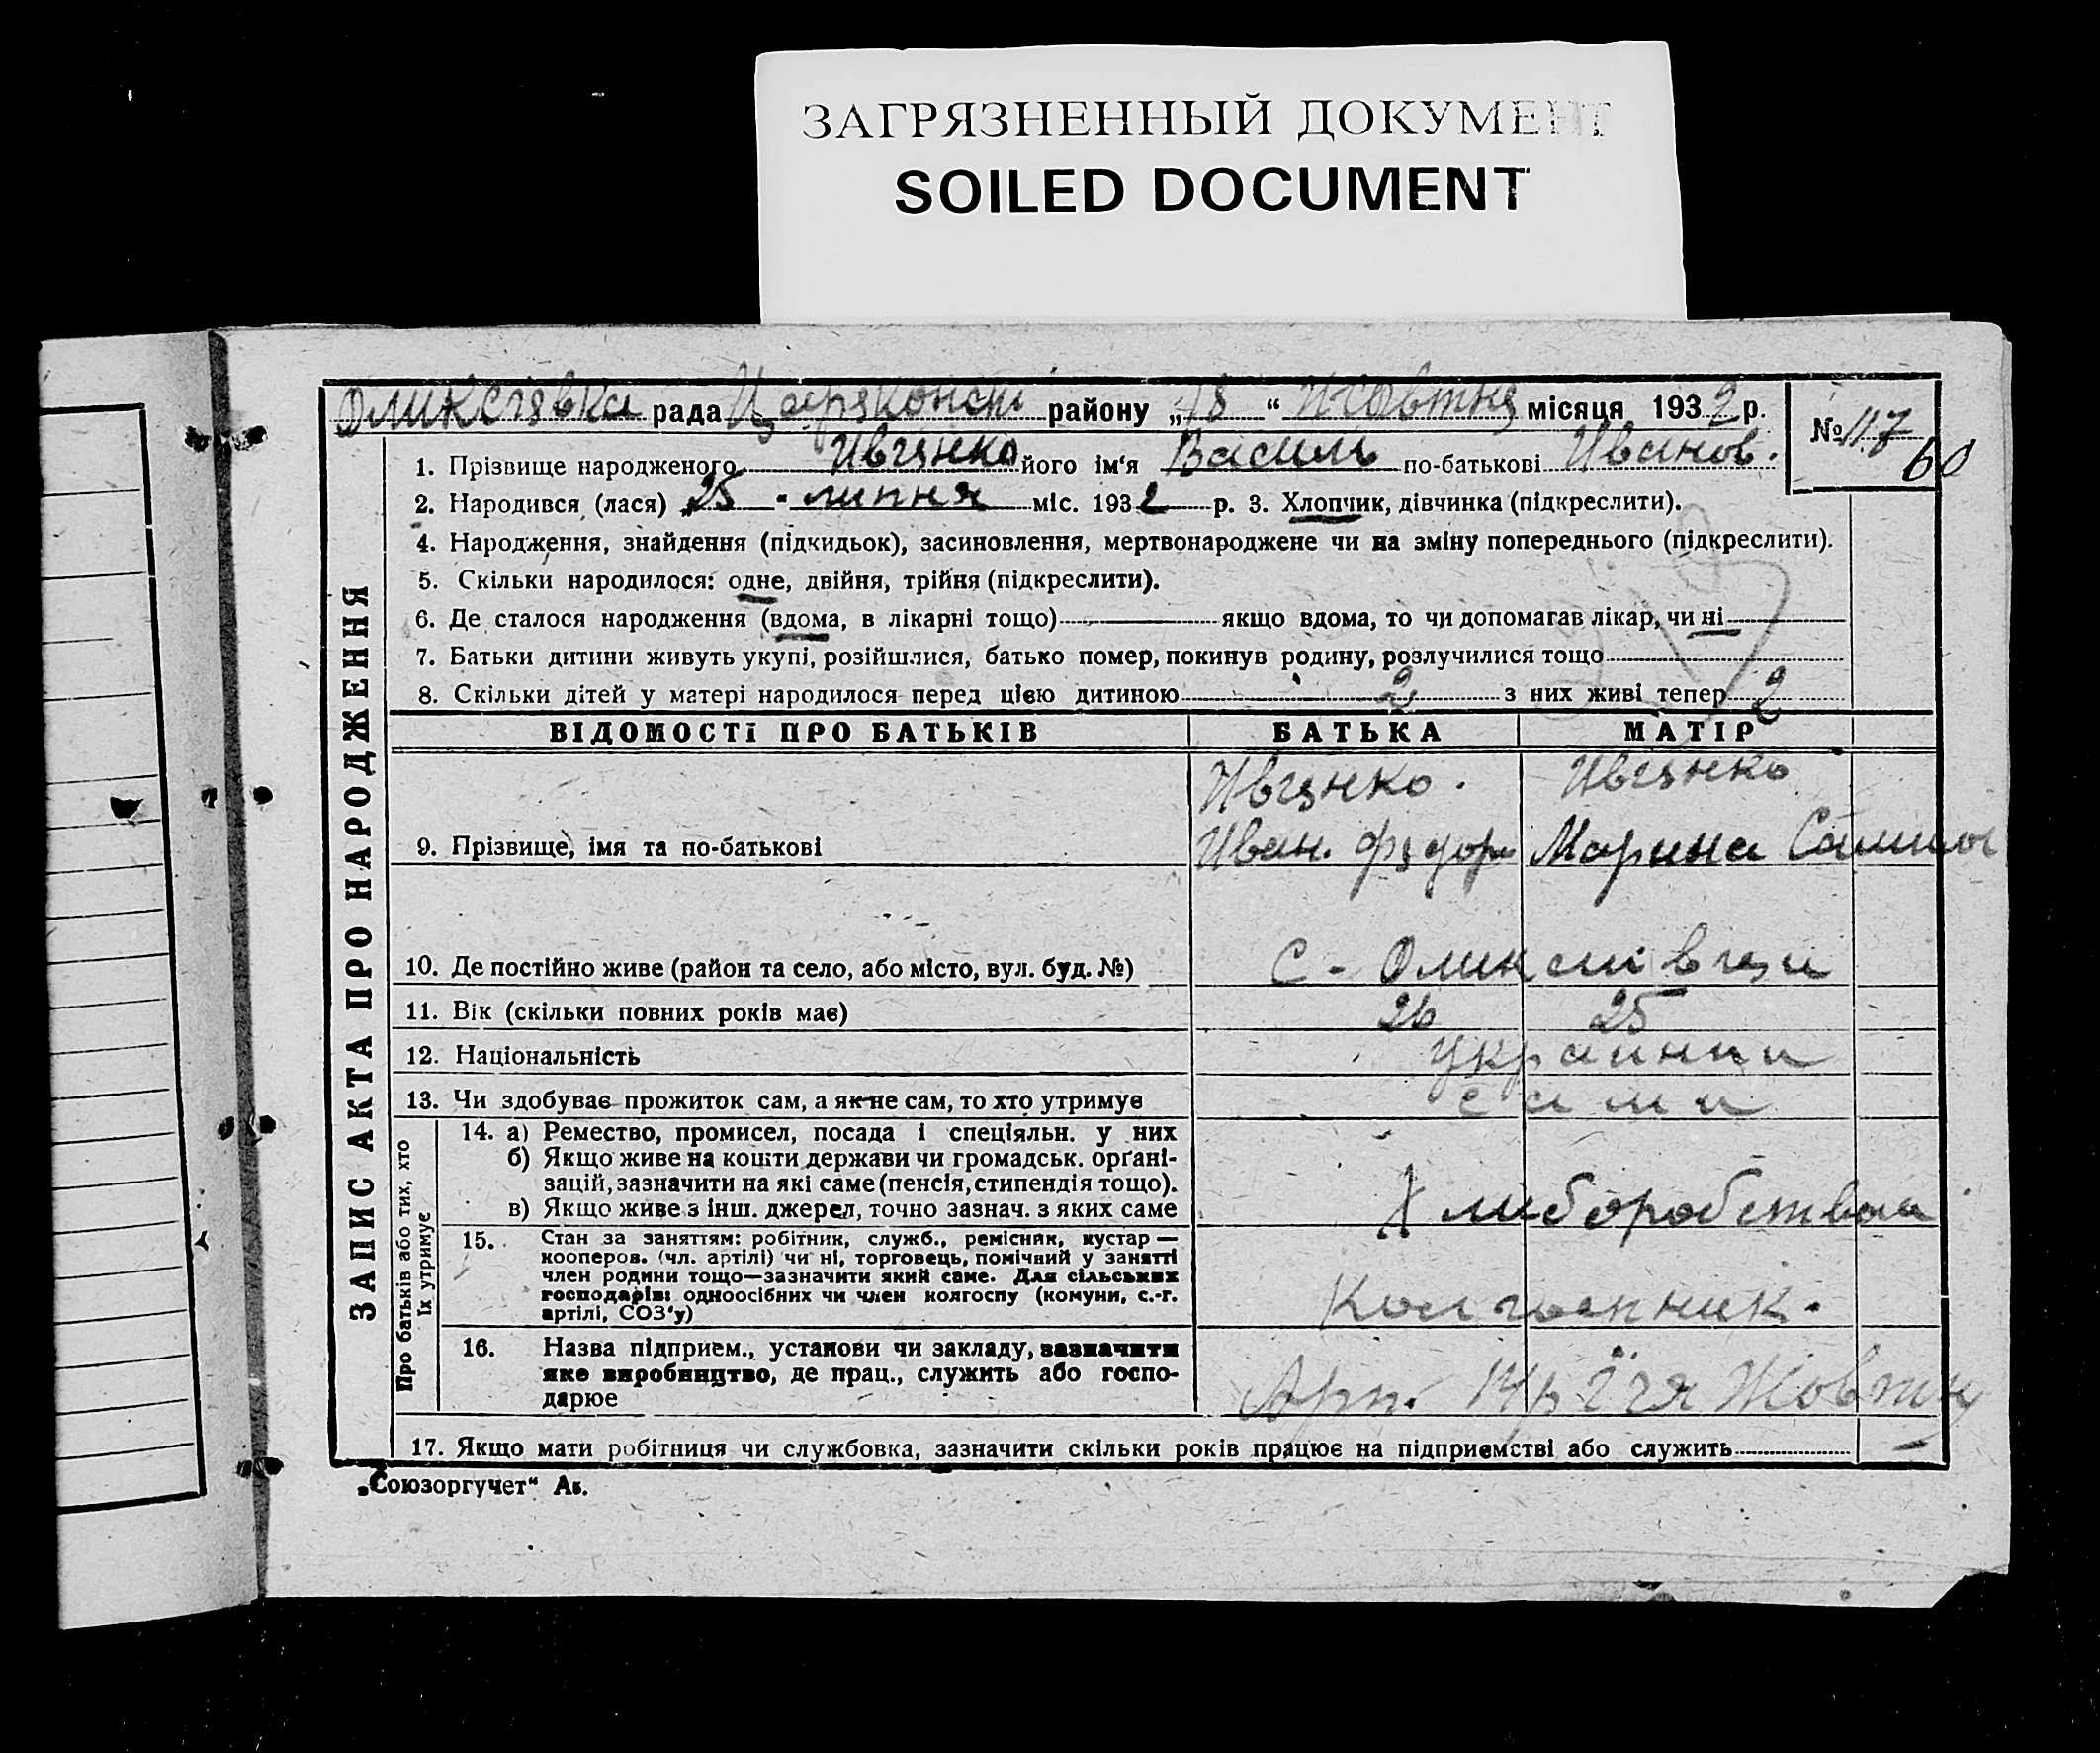 ЗАГРЯЗНЕННЫЙ ДОКУМЕНТ
SOILED DOCUMENT
рада району „18“ Жовтня місяця 1932 р.
№ 117
60
1. Прізвище народженого його ім‘я Василь по-батькові Иванов.
2. Народився (лася) „25 - липня міс. 1932 р. 3. Хлопчик, дівчинка (підкреслити).
4. Народження, знайдення (підкидьок), засиновлення, мертвонароджене чи на зміну попереднього (підкреслити).
5. Скільки народилося: одне, двійня, трійня (підкреслити).
6. Де сталося народження (вдома, в лікарні тощо) якщо вдома, то чи допомагав лікар, чи ні
7. Батьки дитини живуть укупі, розійшлися, батько помер, покинув родину, розлучилися тощо
8. Скільки дітей у матері народилося перед цією дитиною 2 з них живі тепер 2
ЗАПИС АКТА ПРО НАРОДЖЕННЯ
ВІДОМОСТІ ПРО БАТЬКІВ БАТЬКА МАТІР
9. Прізвище, імя та по-батькові Иван. Марина
10. Де постійно живе (район та село, або місто, вул. буд. №) с-
11. Вік (скільки повних років має) 26 25
12. Національність українци
13. Чи здобуває прожиток сам, а як не сам, то хто утримує сами
Про батьків або тих, хто
їх утримує
14. а) Ремество, промисел, посада і спеціяльн. у них
б) Якщо живе на кошти держави чи громадськ. орґані-
зацій, зазначити на які саме (пенсія, стипендія тощо).
в) Якщо живе з інш. джерел, точно зазнач. з яких саме Хлиборобства
15. Стан за заняттям: робітник, служб., ремісник, кустар —
кооперов. (чл. артілі) чи ні, торговець, помічний у занятті
член родини тощо—зазначити який саме. Для сільських
господарів: одноосібних чи член колгоспу (комуни, с.-г.
артілі, СОЗ‘у) Колгоспник.
16. Назва підприєм., установи чи закладу, зазначити
яке виробництво, де прац., служить або госпо-
дарюе Арт.
17. Якщо мати робітниця чи службовка, зазначити скільки років працює на підприємстві або служить —
„Союзоргучет“